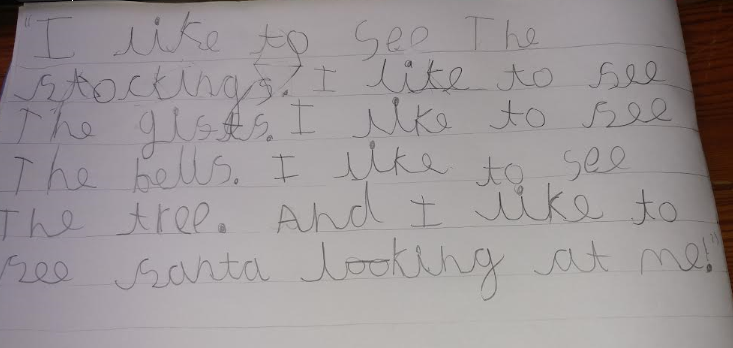 "I like to see The
stockings. I like to see
The gists. I like to see
The bells. I like to see
The tree. And I like to
see santa looking at me!"